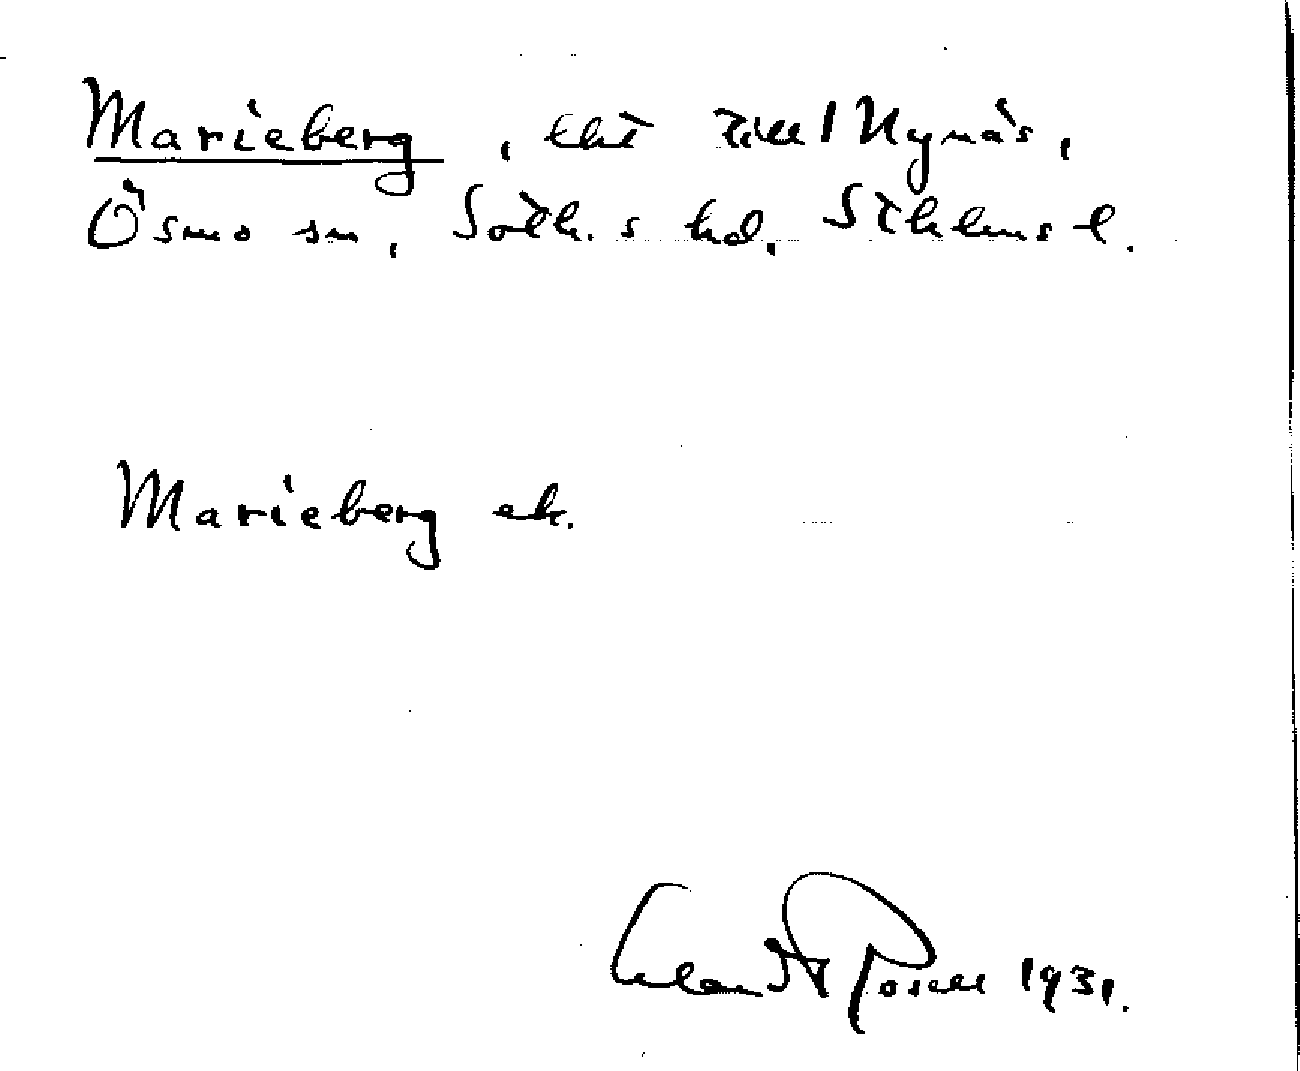 Marieberg, lht till Nynäs,
Ösmo sn, Soth.s hd. Sthlms l.
Marieberg ek.
Erland Rosell 1931.